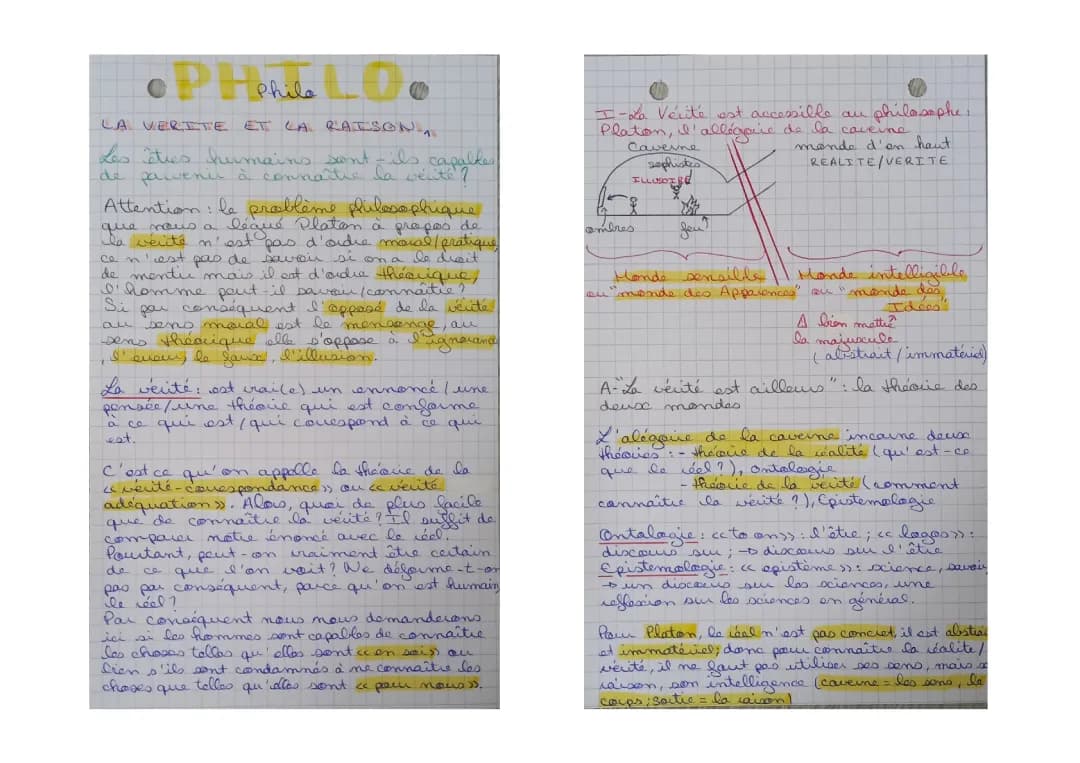 PHILO
Philo
LA VERITE ET LA RAISON,
Les êtres humains sont-ils capables
de parvenir à connaître la vérité?
Attention: le problème philosophique
que nous a légué Platon à propos de
la vérité n'est pas d'ordre moral/pratique,
ce n'est pas de savoir si on a le droit
de mentir mais il est d'ordre théorique,
l'homme peut-il savoir/connaître?
Si par conséquent l'opposé de la vérité
au sens moral est le mensonge, au
sens théorique elle s'oppose à l'ignorance
, l'erreur, le faux, l'illusion.
La vérité: est vrai(e) un ennoncé/une
pensée/une théorie qui est conforme
à ce qui est/qui correspond à ce qui
est.
C'est ce qu'on appelle la théorie de la
«vérité-correspondance» ou «vérité
adéquation». Alors, quoi de plus facile
que de connaître la vérité? Il suffit de
comparer notre énoncé avec le réel.
Pourtant, peut-on vraiment être certain
de ce que l'on voit? Ne déforme-t-on
pas par conséquent, parce qu'on est humain,
le réel?
Par conséquent nous nous demanderons
ici si les hommes sont capables de connaître
les choses telles qu'elles sont «en soi» ou
bien s'ils sont condamnés à ne connaître les
choses que telles qu'elles sont «pour nous».
I-La Vérité est accessible au philosophe:
Platon, l'allégorie de la caverne
Caverne
monde d'en haut
REALITE/VERITE
sophistes
ILLUSOIRE
ombres
feu
Monde sensible
ou "monde des Apparences"
Monde intelligible
ou "monde des
Idées"
⚠ bien mettre
la majuscule
(abstrait/immatériel)
A-"La vérité est ailleurs": la théorie des
deux mondes
L'alégorie de la caverne incarne deux
théories: - théorie de la réalité (qu'est-ce
que le réel?), ontologie
- théorie de la vérité (comment
connaître la vérité?), Epistemologie
Ontologie: «to on»: l'être; «logos»:
discours sur; → discours sur l'être
Epistemologie: «epistème»: science, savoir
→ un discours sur les sciences, une
reflexion sur les sciences en général.
Pour Platon, le réel n'est pas concret, il est abstrait
et immatériel; donc pour connaître la réalité/
vérité, il ne faut pas utiliser ses sens, mais sa
raison, son intelligence (caverne = les sens, le
corps; sortie = la raison)